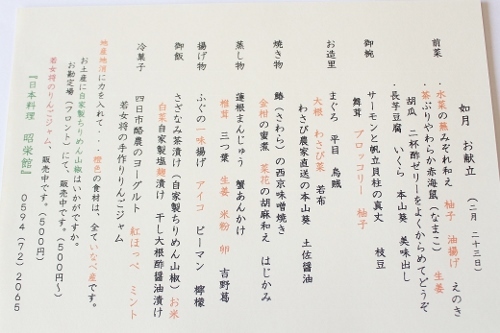 如月　お献立　（二月　二十三日）
前菜　・水菜の蕪みぞれ和え　柚子　油揚げ　えのき
・茶ぶりやわらか赤海鼠（なまこ）　生姜
胡瓜　二杯酢ゼリーをよくからめてどうぞ
・長芋豆腐　いくら　本山葵　美味出し
御椀　サーモンと帆立貝柱の真丈　枝豆
舞茸　ブロッコリー　柚子
お造里　まぐろ　平目　烏賊
大根　わさび菜　若布
わさび農家直送の本山葵　土佐醤油
焼き物　鰆（さわら）の西京味噌焼き
金柑の蜜煮　菜花の胡麻和え　はじかみ
蒸し物　蓮根まんじゅう　蟹あんかけ
椎茸　三つ葉　生姜　米粉　卵　吉野葛
揚げ物　ふぐの一味揚げ　アイコ　ピーマン　檸檬
御飯　さざなみ茶漬け（自家製ちりめん山椒）お米
白菜自家製塩麹漬け　干し大根酢醤油漬け
冷菓子　四日市酪農のヨーグルト　紅ほっぺ　ミント
若女将の手作りりんごジャム
地産地消に力を入れて・・・橙色の食材は、全ていなべ産です。
お土産に自家製ちりめん山椒はいかがですか。
お勘定場（フロント）にて、販売中です。（500円～）
若女将のりんごジャム、販売中です。（500円）
『日本料理　昭栄館』　0594（72）2065